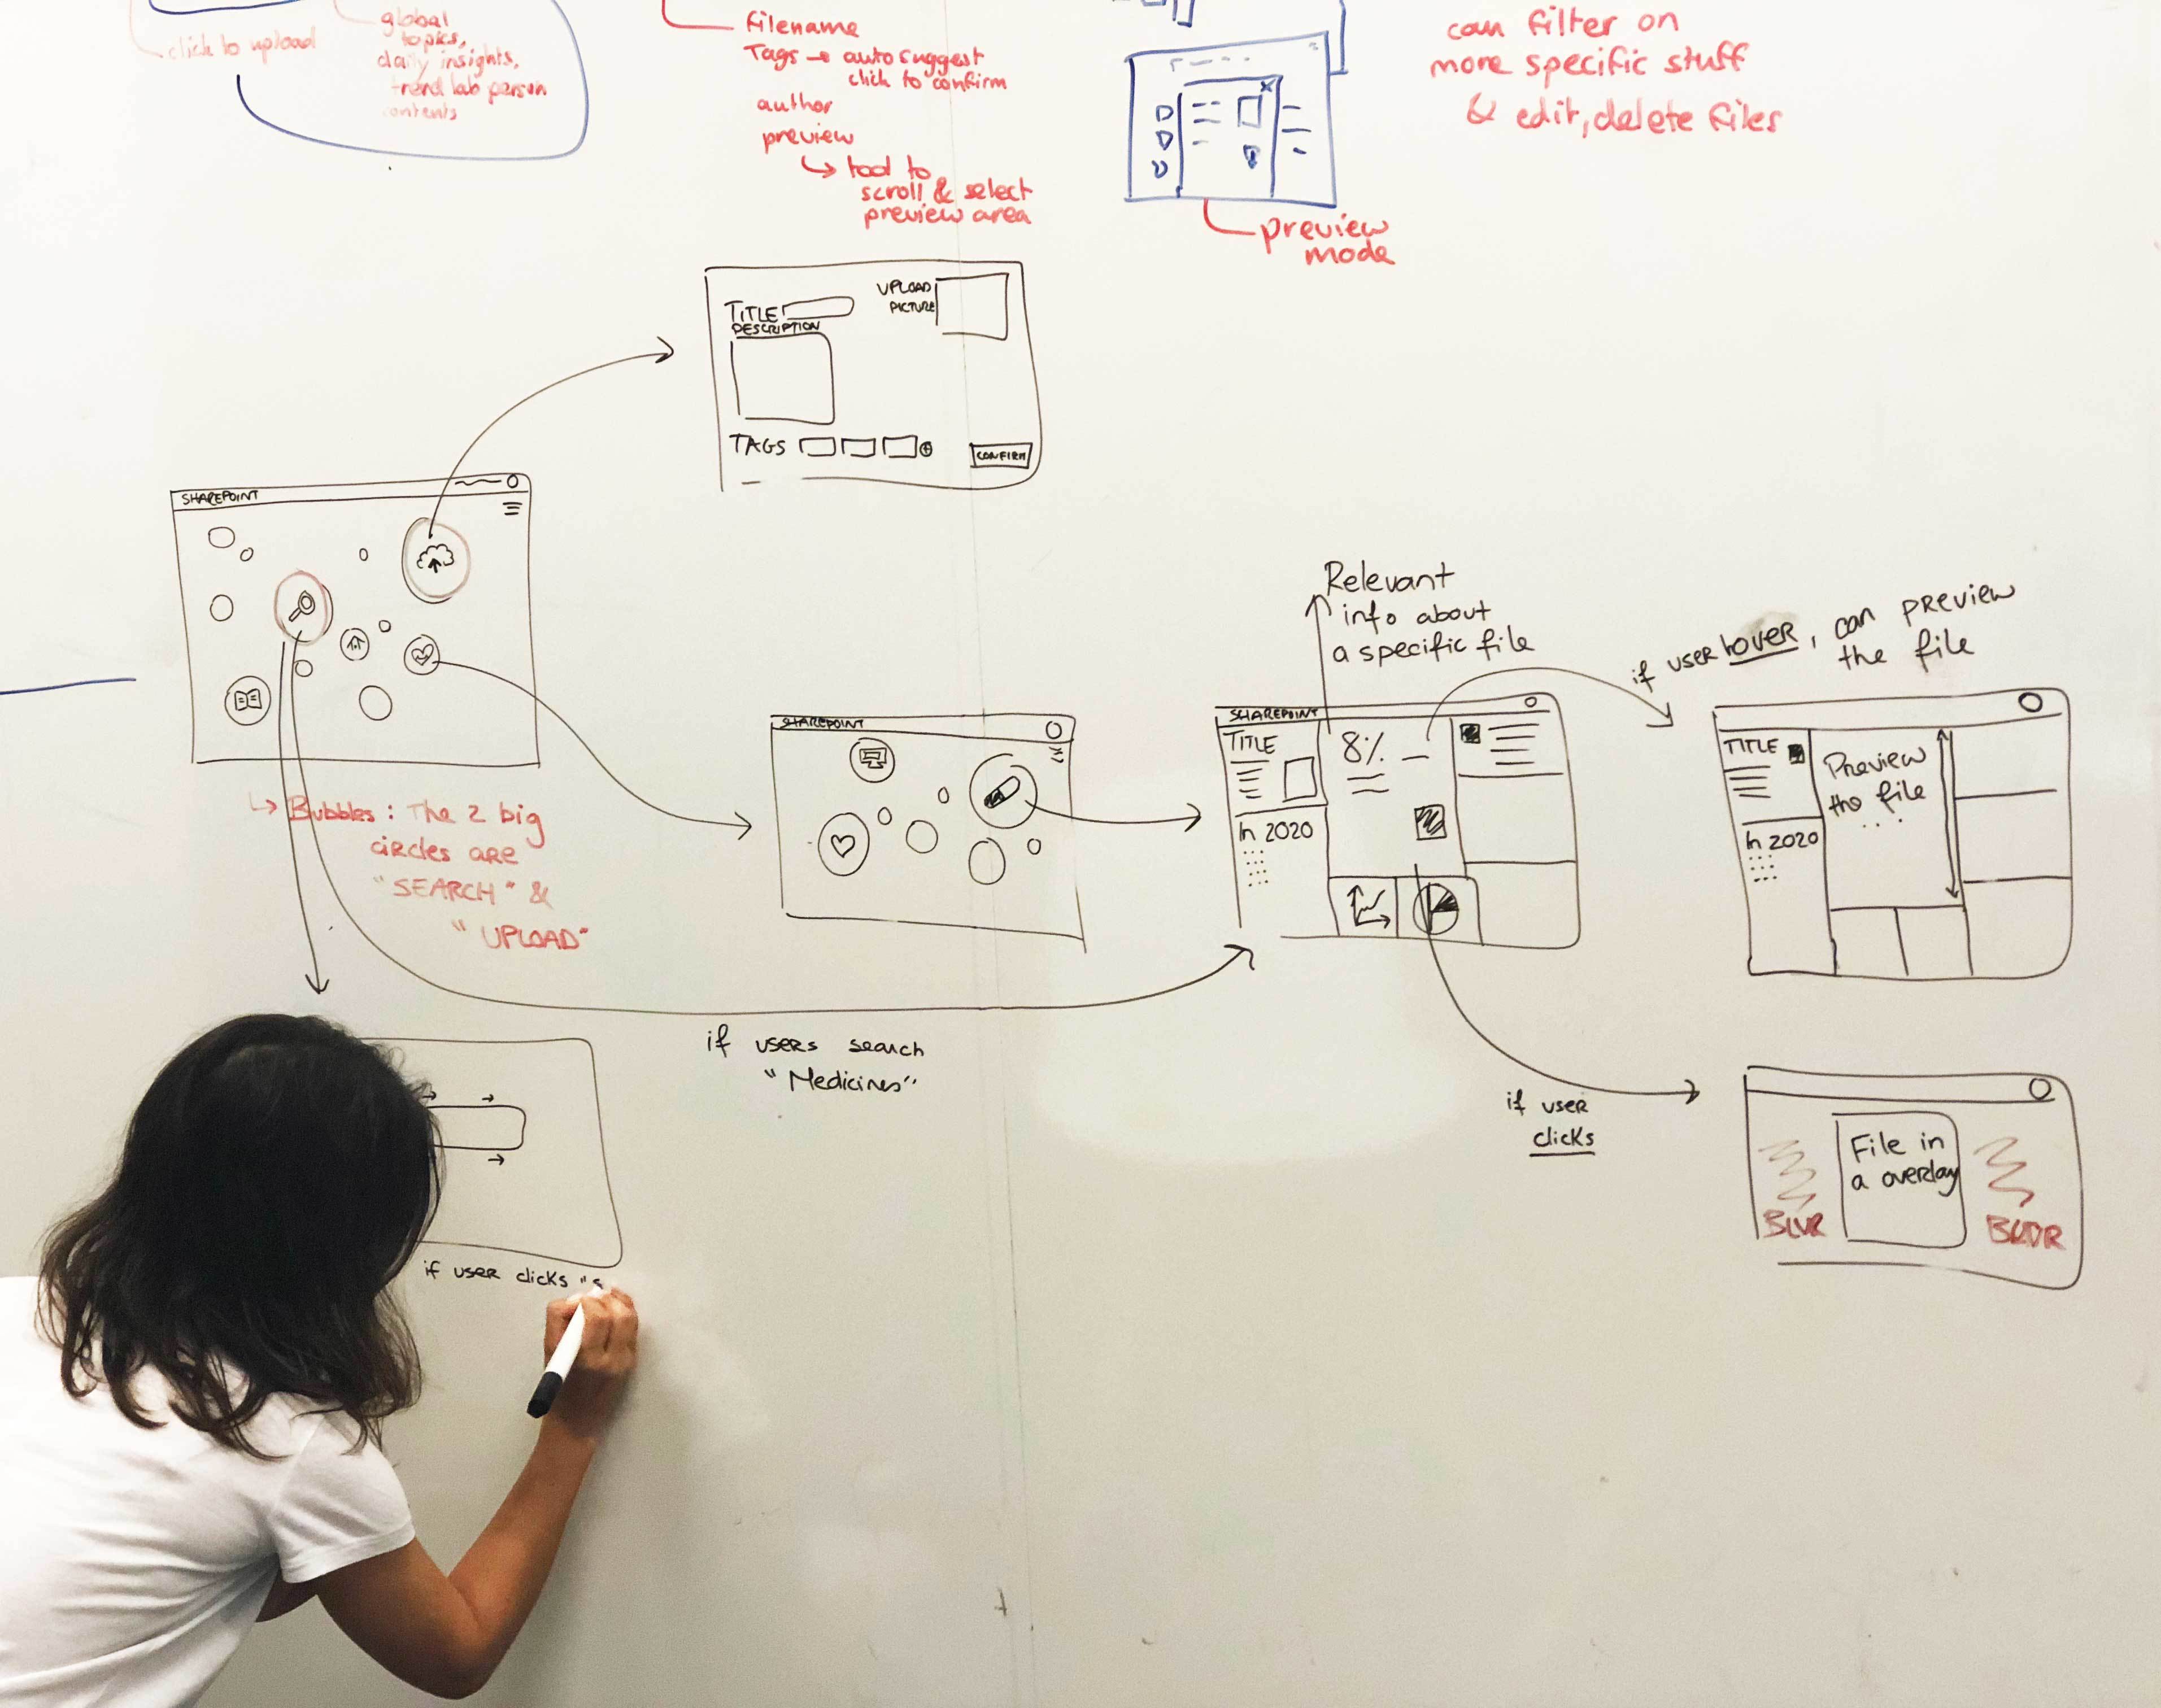 click to upload
global
topics,
daily insights,
trend lab person
contents
filename
Tags → auto suggest
click to confirm
author
preview
↳ tool to
scroll & select
preview area
preview
mode
can filter on
more specific stuff
& edit, delete files
TITLE
DESCRIPTION
UPLOAD
PICTURE
TAGS
CONFIRM
SHAREPOINT
↳ Bubbles : The 2 big
circles are
"SEARCH" &
"UPLOAD"
SHAREPOINT
Relevant
info about
a specific file
SHAREPOINT
TITLE
8%
In 2020
if user hover, can preview
the file
TITLE
Preview
the file
...
In 2020
if users search
"Medicines"
if user
clicks
File in
a overlay
BLUR
BLUR
if user clicks "s